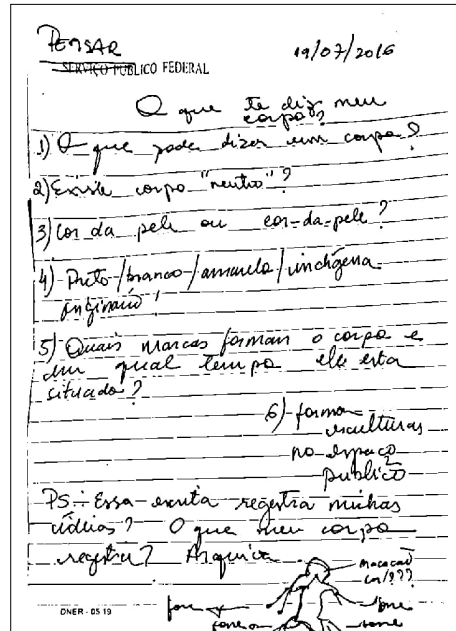 PENSAR
19/07/2016
SERVIÇO PÚBLICO FEDERAL
O que te diz meu
corpo?
1) O que pode dizer um corpo?
2) Existe corpo "neutro"?
3) Cor da pele ou cor-da-pele?
4) Preto/branco/amarelo/indígena
originário!
5) Quais marcas formam o corpo e
em qual tempo ele está
situado?
6) formas
esculturas
no espaço
público
PS: Essa escrita registra minhas
idéias? O que meu corpo
registra? Arquiva
macacão
cor/???
fone
fone
fone
DNER - 05 19